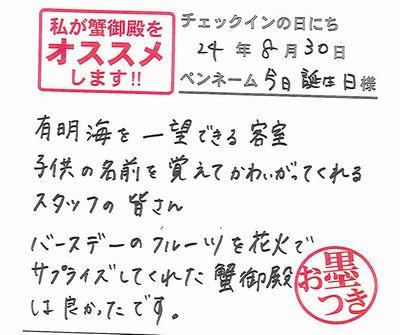 私が蟹御殿を
オススメ
します!!
チェックインの日にち
24年8月30日
ペンネーム 今日誕生日様
有明海を一望できる客室
子供の名前を覚えてかわいがってくれる
スタッフの皆さん
バースデーのフルーツを花火で
サプライズしてくれた蟹御殿
は良かったです。
お墨つき